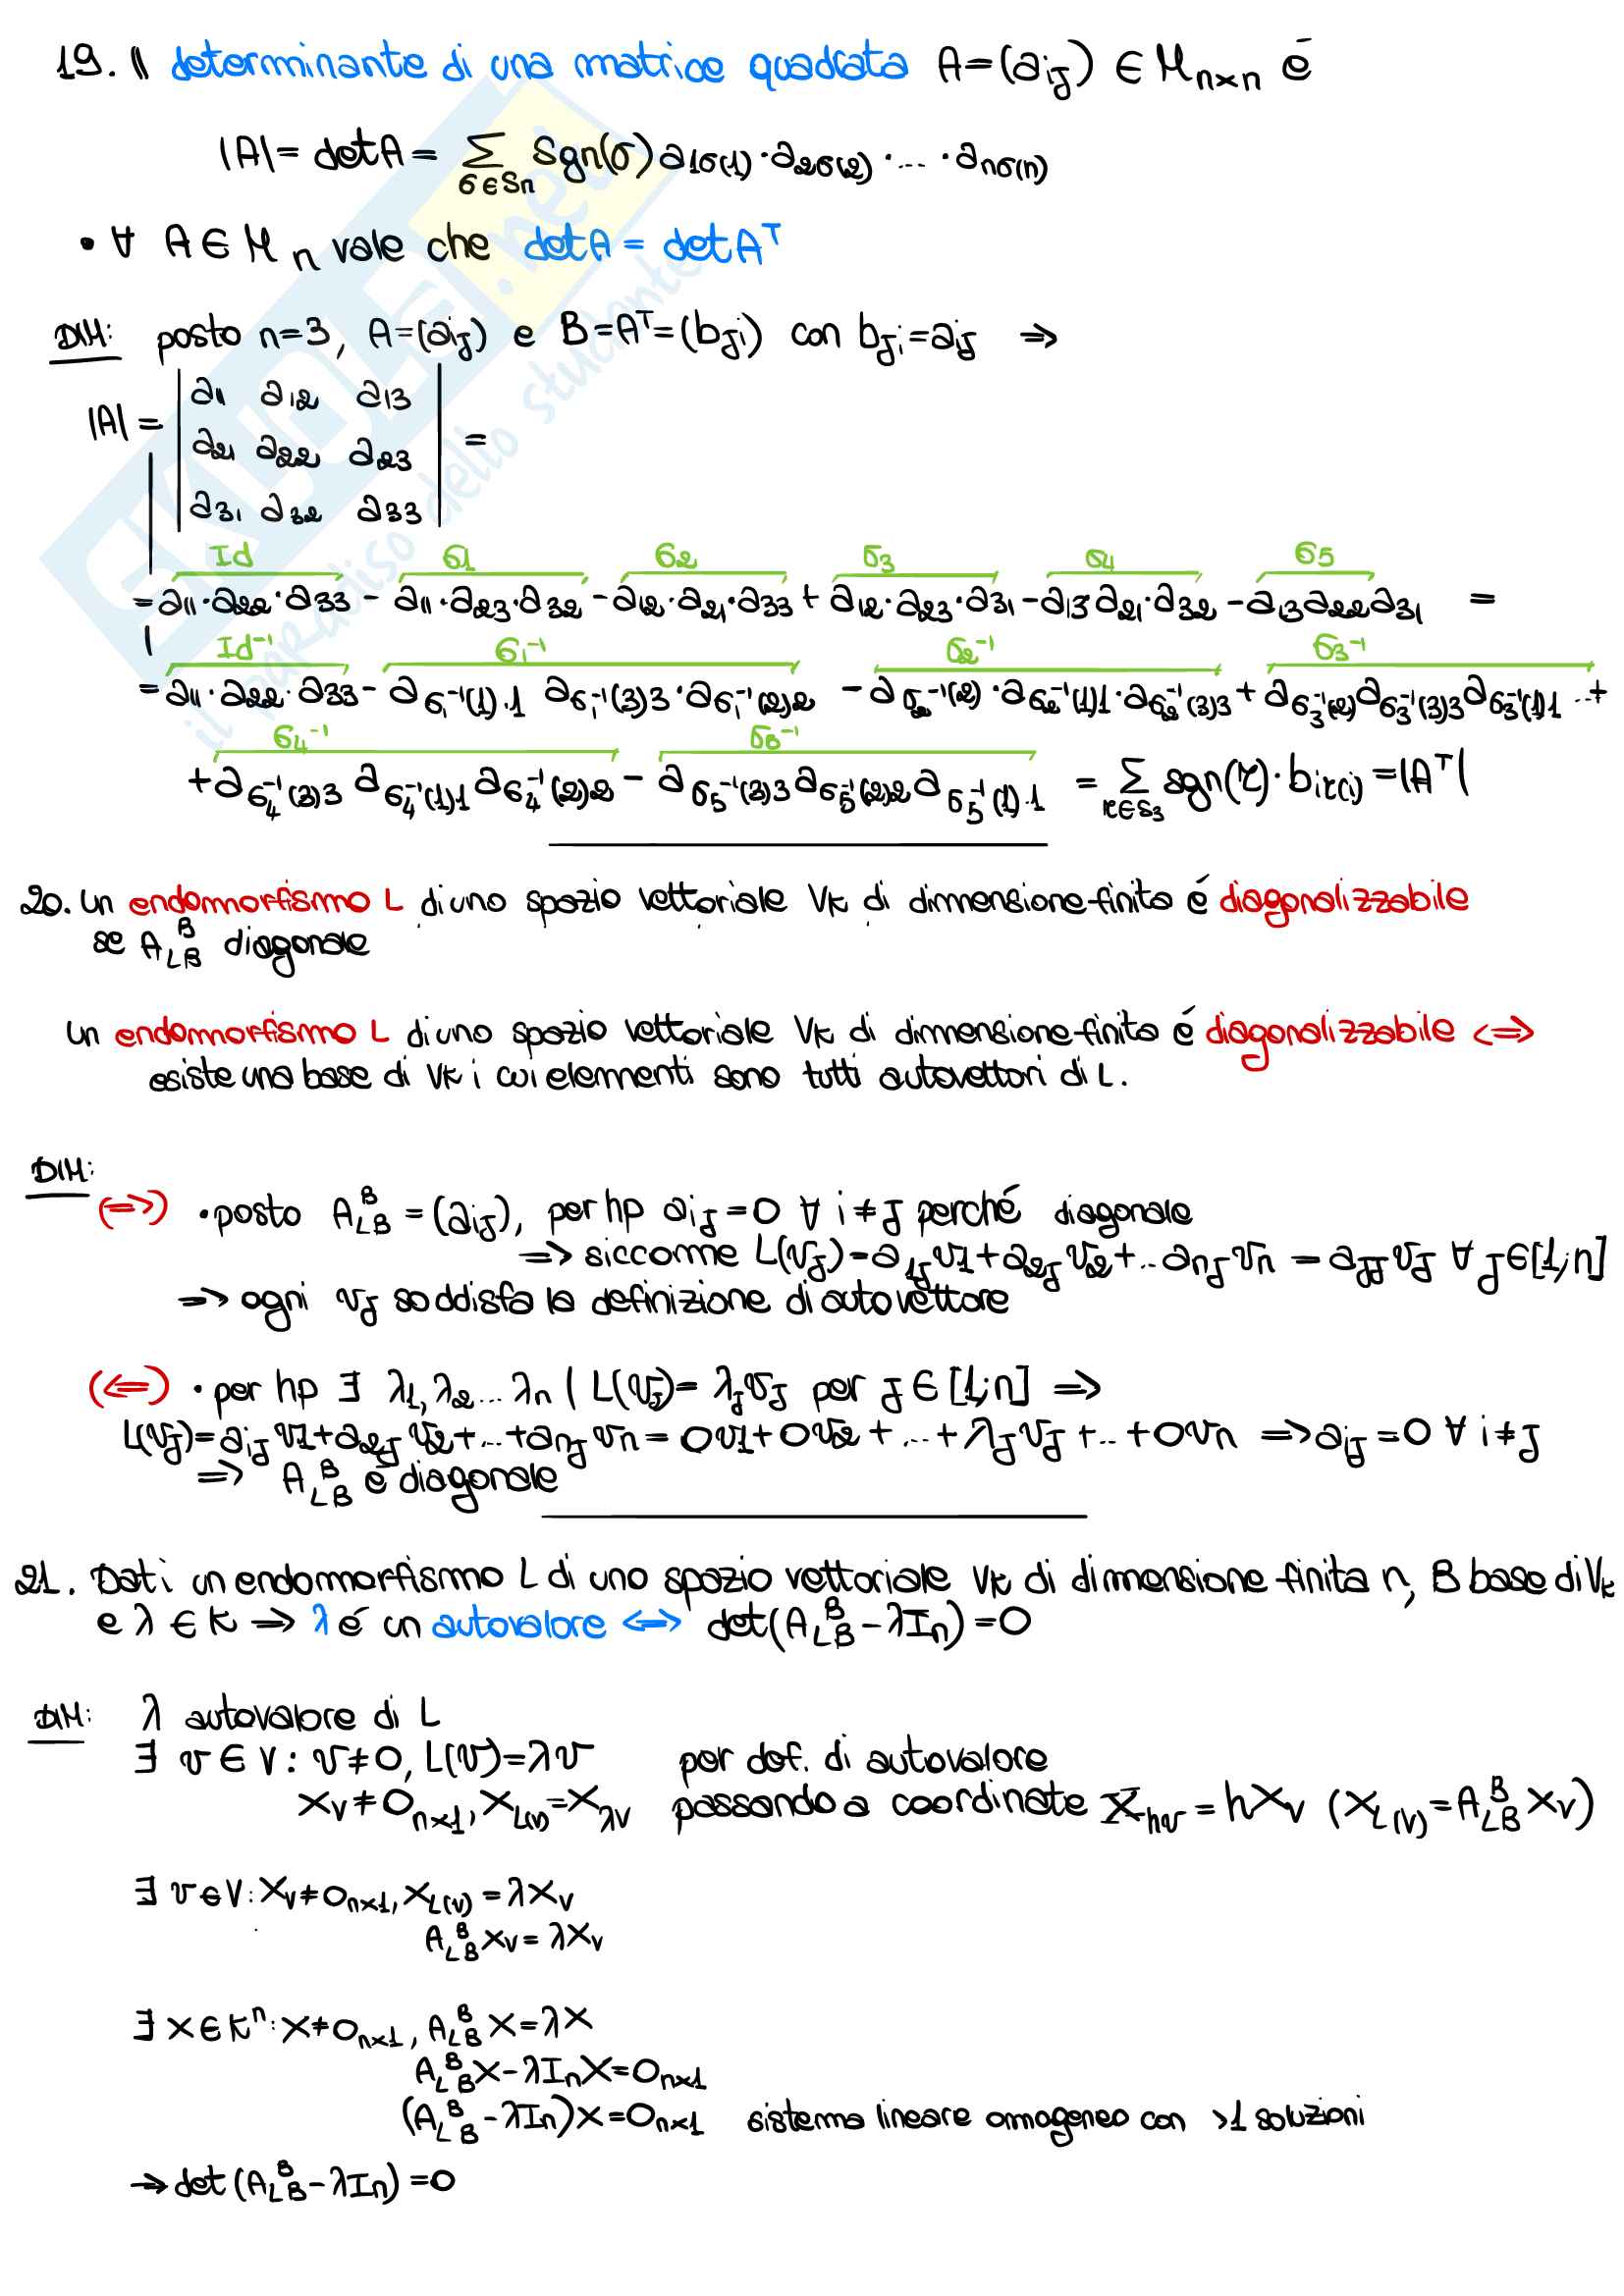 19. Il determinante di una matrice quadrata A=(aij) ∈ Mn×n é
|A| = detA = Σσ∈Sn Sgn(σ) a1σ(1)·a2σ(2)· ... ·anσ(n)
• ∀ A∈Mn vale che detA = detAᵀ
DIM: posto n=3, A=(aij) e B=Aᵀ=(bji) con bji=aij ⇒
|A| = | a11 a12 a13 | =
a21 a22 a23
a31 a32 a33
Id σ1 σ2 σ3 σ4 σ5
= a11·a22·a33 - a11·a23·a32 - a12·a21·a33 + a12·a23·a31 - a13·a21·a32 - a13a22a31 =
Id⁻¹ σ1⁻¹ σ2⁻¹ σ3⁻¹
= a11·a22·a33 - aσ1⁻¹(1)·1 aσ1⁻¹(3)3·aσ1⁻¹(2)2 - aσ2⁻¹(2)·aσ2⁻¹(1)1·aσ2⁻¹(3)3 + aσ3⁻¹(2)aσ3⁻¹(3)3aσ3⁻¹(1)1 ...+
σ4⁻¹ σ5⁻¹
+ aσ4⁻¹(3)3 aσ4⁻¹(1)1 aσ4⁻¹(2)2 - aσ5⁻¹(3)3 aσ5⁻¹(2)2 aσ5⁻¹(1)·1 = Στ∈S3 sgn(τ)·biτ(i) = |Aᵀ|
20. Un endomorfismo L di uno spazio vettoriale VK di dimensione finita é diagonalizzabile
se A_LB^B diagonale
Un endomorfismo L di uno spazio vettoriale VK di dimensione finita é diagonalizzabile <=>
esiste una base di VK i cui elementi sono tutti autovettori di L.
DIM:
(=>) • posto A_LB^B = (aij), per hp aij=0 ∀ i≠j perché diagonale
=> siccome L(vj)=a1jv1+a2jv2+...anjvn = ajjvj ∀ j∈[1;n]
=> ogni vj soddisfa la definizione di autovettore
(<=) • per hp ∃ λ1,λ2...λn | L(vj)=λjvj per j∈[1;n] =>
L(vj)=aijv1+a2jv2+...+anjvn = 0v1+0v2+...+λjvj+...+0vn => aij=0 ∀ i≠j
=> A_LB^B é diagonale
21. Dati un endomorfismo L di uno spazio vettoriale VK di dimensione finita n, B base di VK
e λ ∈ K => λ é un autovalore <=> det(A_LB^B - λIn)=0
DIM: λ autovalore di L
∃ v∈V: v≠0, L(v)=λv per def. di autovalore
Xv≠0n×1, XL(v)=Xλv passando a coordinate Xhv = hXv (XL(v)=A_LB^B Xv)
∃ v∈V: Xv≠0n×1, XL(v) = λXv
A_LB^B Xv = λXv
∃ X∈Kⁿ: X≠0n×1, A_LB^B X=λX
A_LB^B X-λInX=0n×1
(A_LB^B - λIn)X=0n×1 sistema lineare omogeneo con >1 soluzioni
→ det(A_LB^B - λIn)=0
SKUOLA.net
il paradiso dello studente